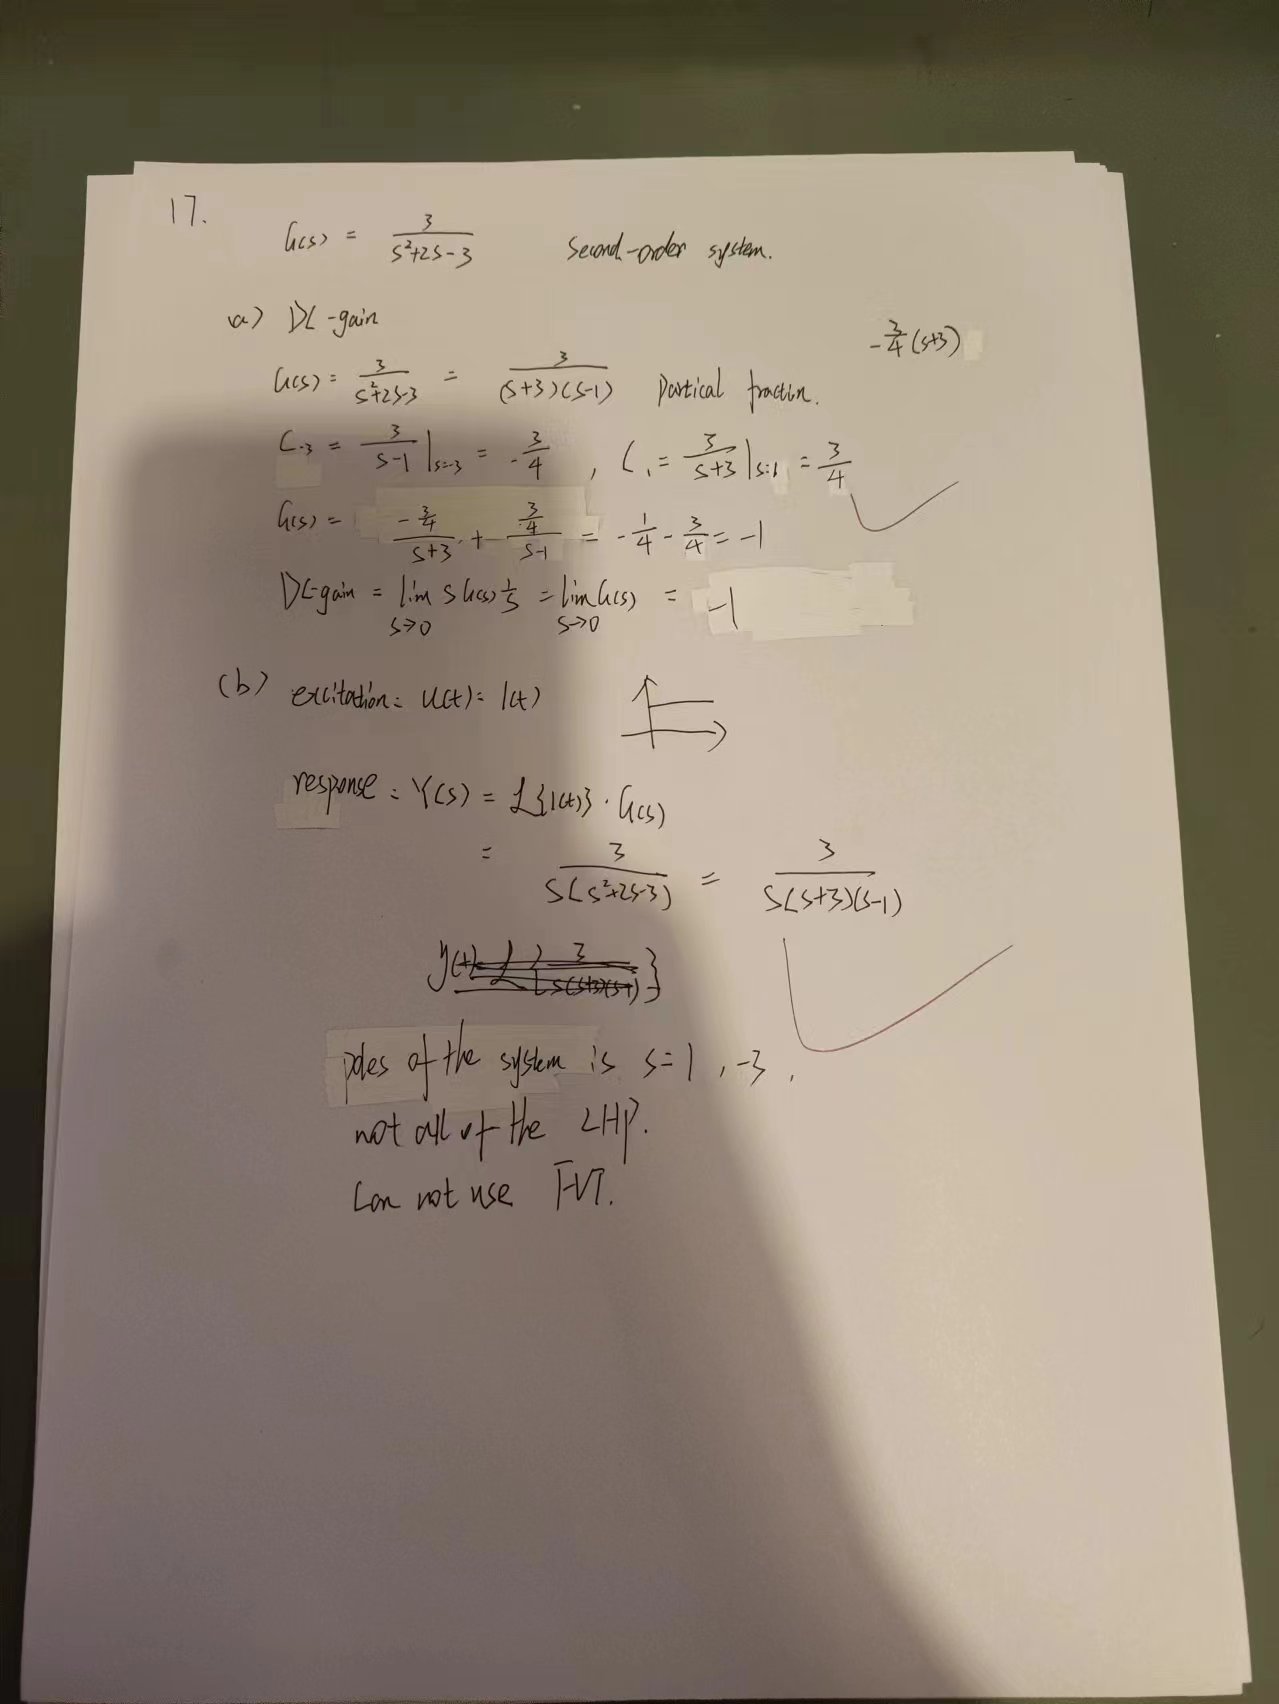 17.
G(s) = 3/(s²+2s-3) Second-order system.
a) DC-gain
-3/4 (s+3)
G(s) = 3/(s²+2s-3) = 3/((s+3)(s-1)) Partical fraction.
C₋₃ = 3/(s-1)|s=-3 = -3/4 , C₁ = 3/(s+3)|s=1 = 3/4
G(s) = (-3/4)/(s+3) + (3/4)/(s-1) = -1/4 - 3/4 = -1
DC-gain = lim s→0 s G(s) 1/s = lim s→0 G(s) = -1
(b) excitation: u(t) = 1(t)
response: Y(s) = L{1(t)} · G(s)
= 3/(s(s²+2s-3)) = 3/(s(s+3)(s-1))
y(t) = L{3/(s(s+3)(s-1))}
poles of the system is s=1, -3,
not all of the LHP.
Can not use FVT.